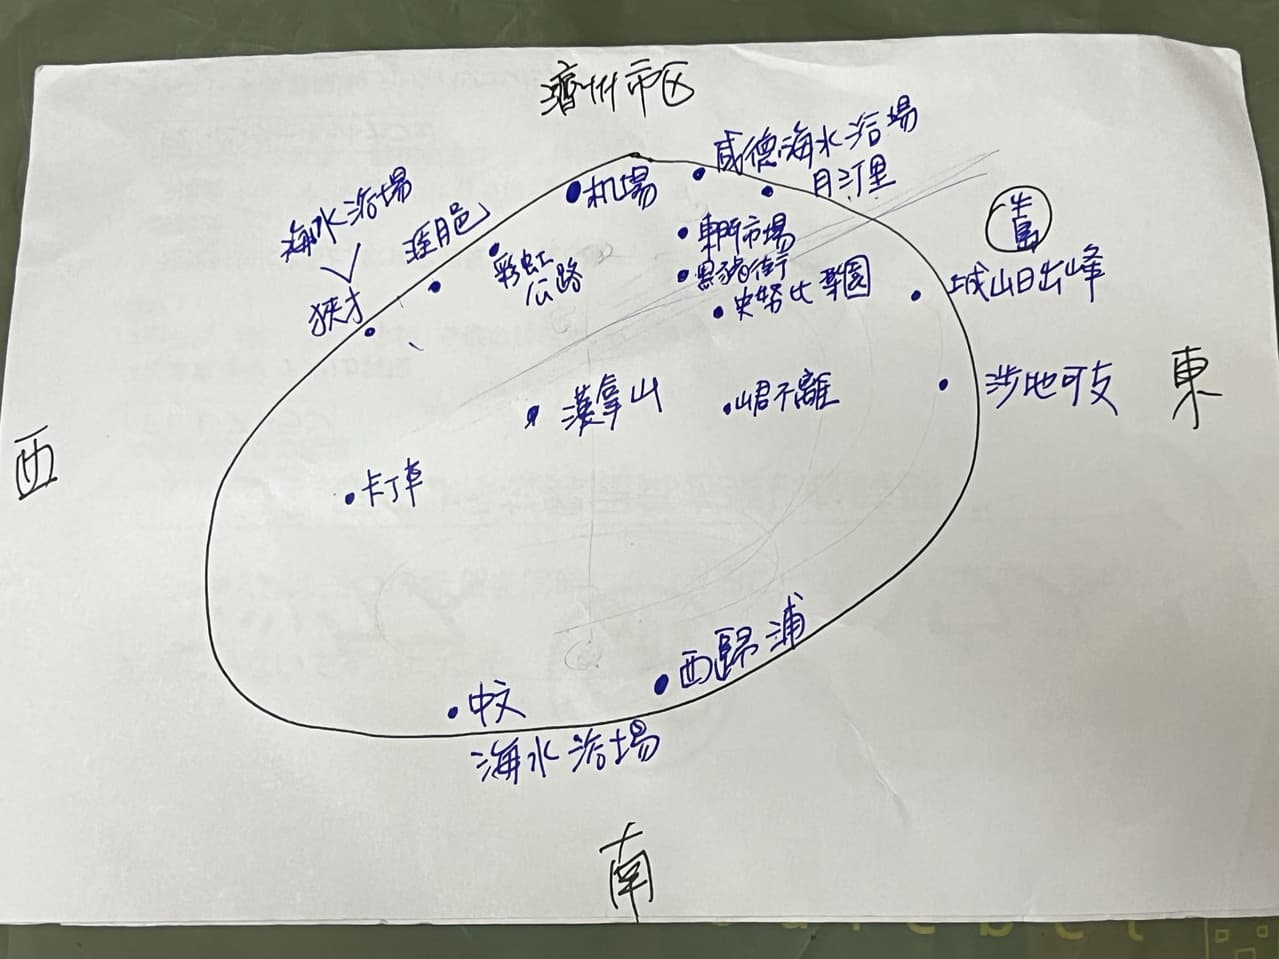 濟州市区
咸德海水浴場
月汀里
机場
海水浴場
涯月邑
狹才
彩虹
公路
東門市場
黑豬街
史努比
牛島
城山日出峰
涉地可支
東
西
漢拿山
山君不離
卡丁車
西歸浦
中文
海水浴場
南